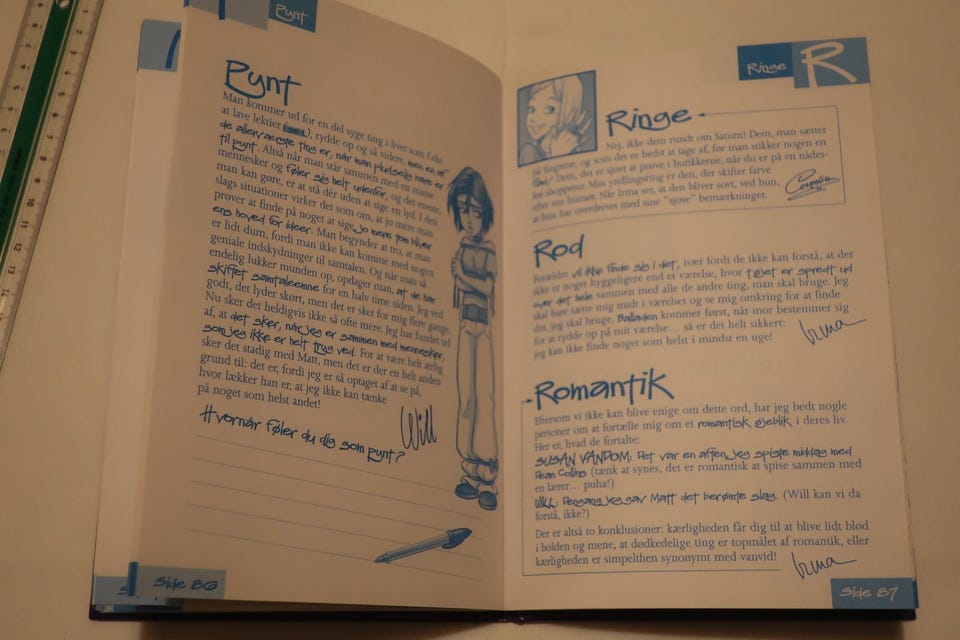 Pynt
Pynt
Man kommer ud for en del syge ting i livet som f.eks.
at lave lektier (            ), rydde op og så videre, men en af
de allerværste ting er, når man pludselig bare er
til pynt. Altså når man står sammen med en masse
mennesker og føler sig helt udenfor, og det eneste,
man kan gøre, er at stå dér uden at sige en lyd. I den
slags situationer virker det som om, at jo mere man
prøver at finde på noget at sige, jo mere tom bliver
ens hoved for ideer. Man begynder at tro, at man
er lidt dum, fordi man ikke kan komme med nogen
geniale indskydninger til samtalen. Og når man så
endelig lukker munden op, opdager man, at de har
skiftet samtaleemne for en halv time siden. Jeg ved
godt, det lyder skørt, men det er sket for mig flere gange.
Nu sker det heldigvis ikke så ofte mere. Jeg har fundet ud
af, at det sker, når jeg er sammen med mennesker,
som jeg ikke er helt tryg ved. For at være helt ærlig
sker det stadig med Matt, men det er der en helt anden
grund til: det er, fordi jeg er så optaget af at se på,
hvor lækker han er, at jeg ikke kan tænke
på noget som helst andet!
Will
Hvornår føler du dig som pynt?
Side 86
Ringe
R
Ringe
Nej, ikke dem rundt om Saturn! Dem, man sætter
på fingrene, og som det er bedst at tage af, før man stikker nogen en
flad! Dem, det er sjovt at prøve i butikkerne, når du er på en nådes-
løs shoppetur. Min yndlingsring er den, der skifter farve
efter ens humør. Når Irma ser, at den bliver sort, ved hun,
at hun har overdrevet med sine "sjove" bemærkninger.
Cornelia
Rod
Forældre vil ikke finde sig i det, især fordi de ikke kan forstå, at der
ikke er noget hyggeligere end et værelse, hvor tøjet er spredt ud
over det hele sammen med alle de andre ting, man skal bruge. Jeg
skal bare sætte mig midt i værelset og se mig omkring for at finde
det, jeg skal bruge. Balladen kommer først, når mor bestemmer sig
for at rydde op på mit værelse... så er det helt sikkert:
jeg kan ikke finde noget som helst i mindst en uge!
Irma
Romantik
Eftersom vi ikke kan blive enige om dette ord, har jeg bedt nogle
personer om at fortælle mig om et romantisk øjeblik i deres liv.
Her er, hvad de fortalte:
SUSAN VANDOM: Det var en aften, jeg spiste middag med
Dean Collins (tænk at synes, det er romantisk at spise sammen med
en lærer... puha!)
WILL: Dengang jeg gav Matt det berømte slag. (Will kan vi da
forstå, ikke?)
Der er altså to konklusioner: kærligheden får dig til at blive lidt blød
i bolden og mene, at dødkedelige ting er topmålet af romantik, eller
kærligheden er simpelthen synonymt med vanvid!
Irma
Side 87